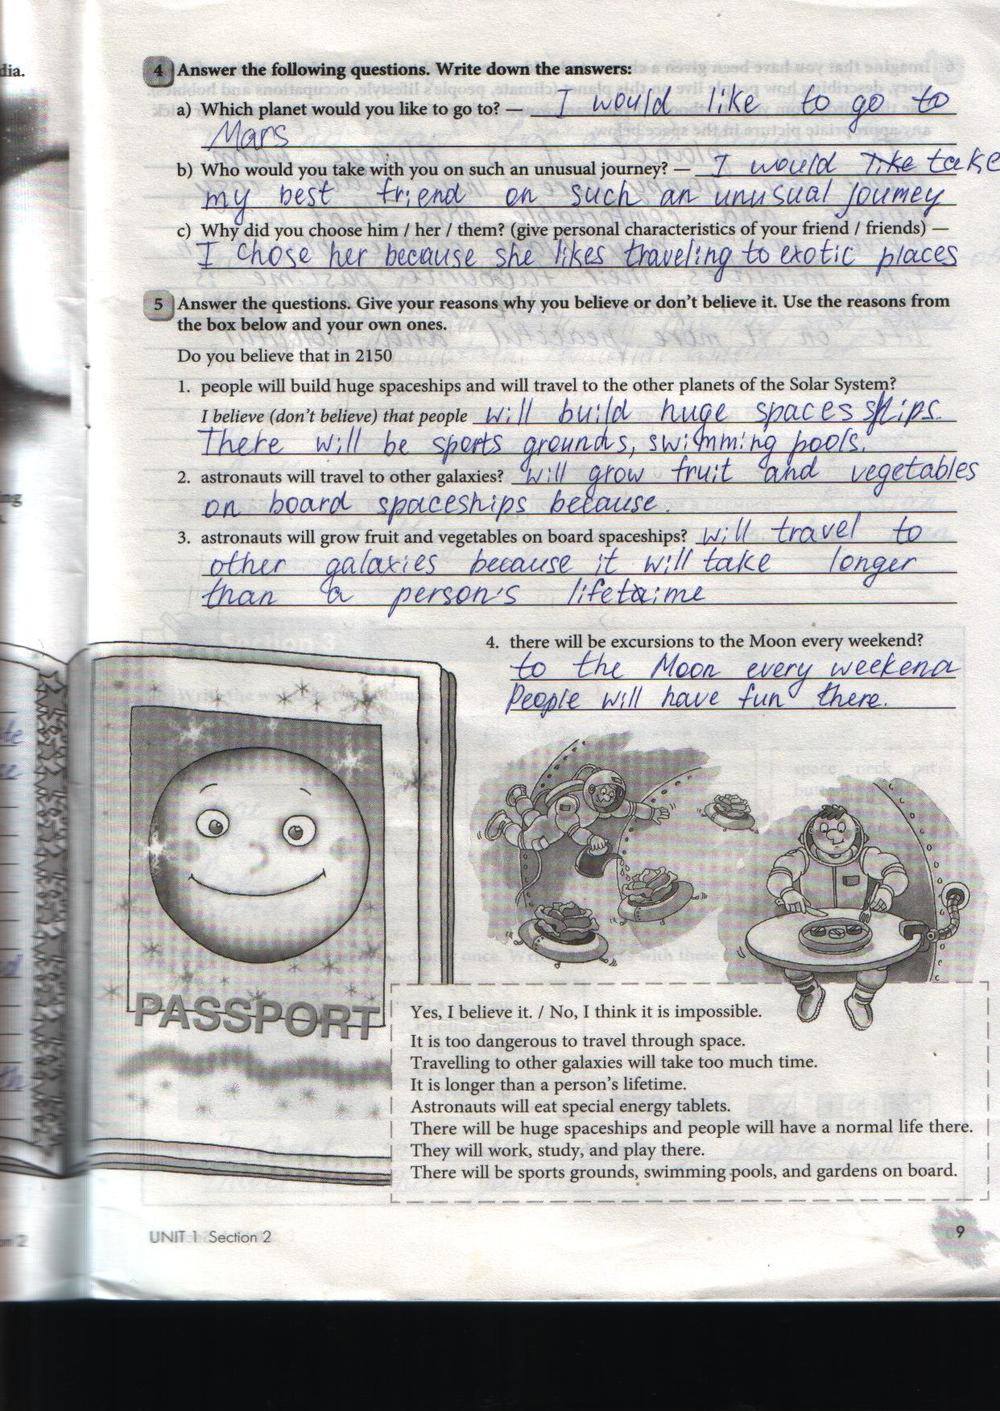 dia.
4 Answer the following questions. Write down the answers:
a) Which planet would you like to go to? — I would like to go to
Mars
b) Who would you take with you on such an unusual journey? — I would like take
my best friend on such an unusual journey
c) Why did you choose him / her / them? (give personal characteristics of your friend / friends) —
I chose her because she likes traveling to exotic places
5 Answer the questions. Give your reasons why you believe or don't believe it. Use the reasons from
the box below and your own ones.
Do you believe that in 2150
1. people will build huge spaceships and will travel to the other planets of the Solar System?
I believe (don't believe) that people will build huge spaces ships.
There will be sports grounds, swimming pools.
2. astronauts will travel to other galaxies? will grow fruit and vegetables
on board spaceships because.
3. astronauts will grow fruit and vegetables on board spaceships? will travel to
other galaxies because it will take longer
than a person's lifetaime
4. there will be excursions to the Moon every weekend?
to the Moon every weekend
People will have fun there.
PASSPORT
Yes, I believe it. / No, I think it is impossible.
It is too dangerous to travel through space.
Travelling to other galaxies will take too much time.
It is longer than a person's lifetime.
Astronauts will eat special energy tablets.
There will be huge spaceships and people will have a normal life there.
They will work, study, and play there.
There will be sports grounds, swimming pools, and gardens on board.
UNIT 1 Section 2
9